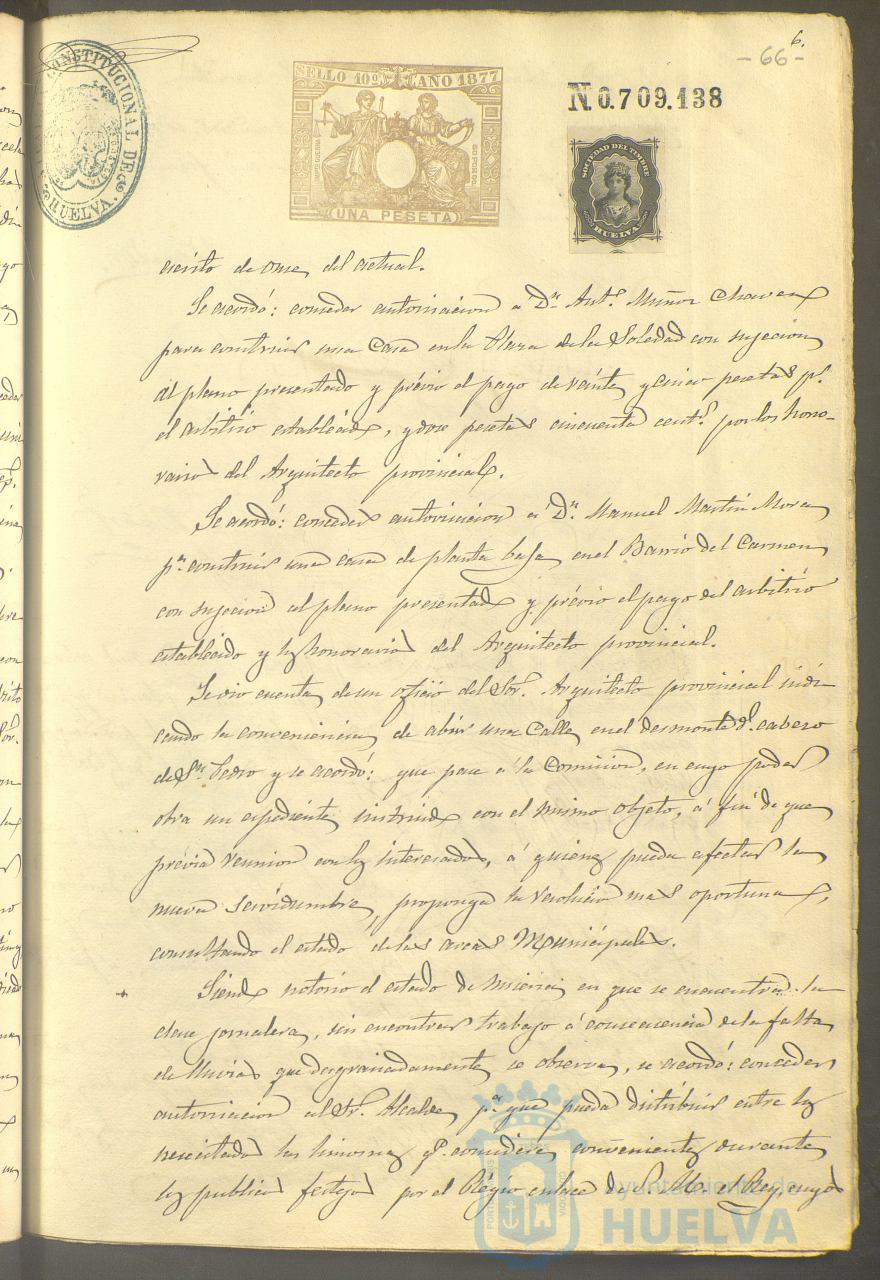 6.
- 66 -
CONSTITUCIONAL DE
HUELVA.
SELLO 10º AÑO 1877
UNA PESETA
N 0.709.138
SOCIEDAD DEL TIMBRE
HUELVA
escrito de once del actual.
Se acordó: conceder autorizacion á Dn. Antº. Muñoz Chaves
para construir una Casa en la Plaza de la Soledad con sujecion
al plano presentado y prévio el pago de veinte y cinco pesetas pr.
el arbitrio establecido, y doce pesetas cincuenta centˢ. por los hono-
rarios del Arquitecto provincial.
Se acordó: conceder autorizacion á Dn. Manuel Martin Mora
pª. construir una casa de planta baja en el Barrio del Carmen
con sujecion al plano presentado y prévio el pago del arbitrio
establecido y los honorarios del Arquitecto provincial.
Se dio cuenta de un oficio del Sor. Arquitecto provincial indi-
cando la conveniencia de abrir una Calle en el desmonte dl. cabezo
de Sn. Pedro y se acordó: que pase á la Comision, en cuyo poder
obra un expediente instruido con el mismo objeto, á fin de que
prévia reunion con los interesados, á quienes pueda afectar la
nueva servidumbre, proponga la resolucion mas oportuna,
consultando el estado de las arcas Municipales.
+ Siendo notorio el estado de miseria en que se encuentra la
clase jornalera, sin encontrar trabajo á consecuencia de la falta
de lluvias que desgraciadamente se observa, se acordó: conceder
autorizacion al Sr. Alcalde pª que pueda distribuir entre los
necesitados las limosnas qe. considere convenientes durante
los publicos festejos por el Régio enlace de S. M. el Rey, cuyos
Ayuntamiento de
HUELVA